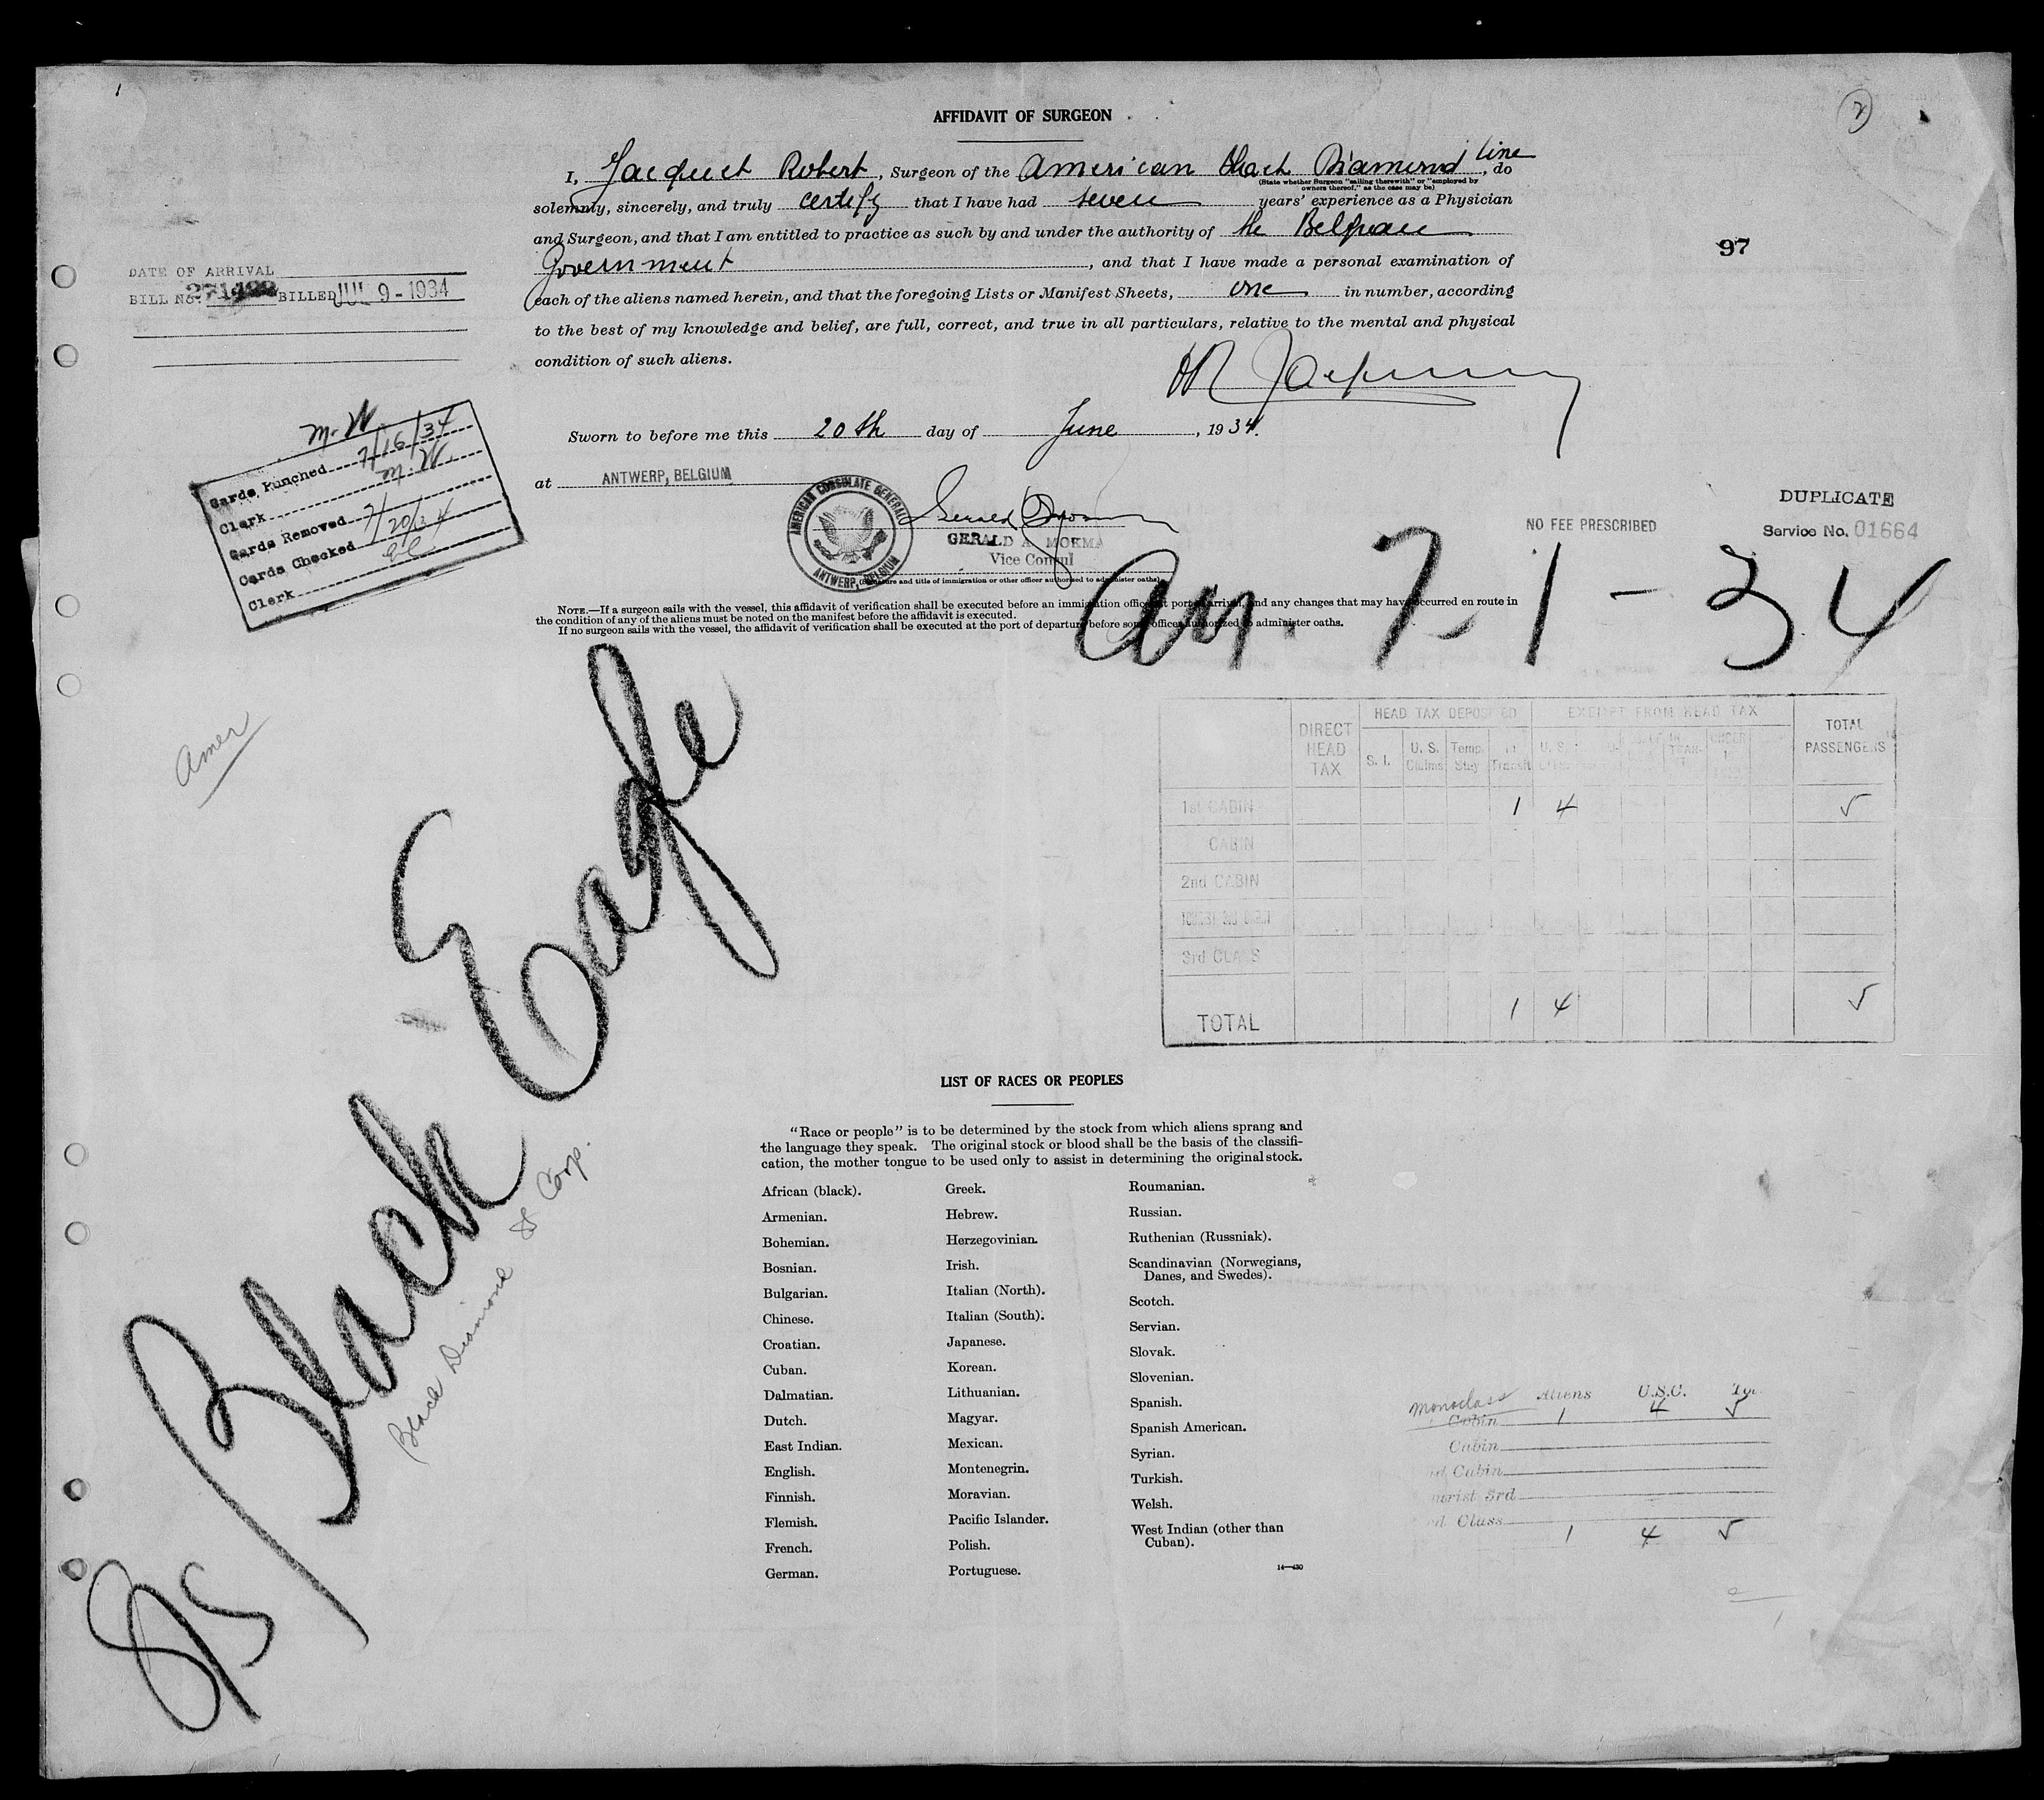 AFFIDAVIT OF SURGEON
I, Jacquet Robert, Surgeon of the American Black Diamond Line, do
(State whether Surgeon "sailing therewith" or "employed by
owners thereof," as the case may be)
solemnly, sincerely, and truly certify that I have had seven years' experience as a Physician
and Surgeon, and that I am entitled to practice as such by and under the authority of the Belgian
Government, and that I have made a personal examination of
each of the aliens named herein, and that the foregoing Lists or Manifest Sheets, one in number, according
to the best of my knowledge and belief, are full, correct, and true in all particulars, relative to the mental and physical
condition of such aliens.
97
DATE OF ARRIVAL
BILL No. BILLED JUL 9 - 1934
Sworn to before me this 20th day of June, 1934.
at ANTWERP, BELGIUM
AMERICAN CONSULATE GENERAL
ANTWERP, BELGIUM
GERALD A. MOKMA
Vice Consul
(Signature and title of immigration or other officer authorized to administer oaths)
NO FEE PRESCRIBED
DUPLICATE
Service No. 01664
M. W.
Cards Punched 7/16/34
Clerk M. W.
Cards Removed 7/20/34
Cards Checked
Clerk
NOTE.—If a surgeon sails with the vessel, this affidavit of verification shall be executed before an immigration officer at port of arrival, and any changes that may have occurred en route in
the condition of any of the aliens must be noted on the manifest before the affidavit is executed.
If no surgeon sails with the vessel, the affidavit of verification shall be executed at the port of departure before some officer authorized to administer oaths.
Arr. 7-1-34
Amer
S/S Black Eagle
Black Diamond SS Corp.
DIRECT HEAD TAX
HEAD TAX DEPOSITED
EXEMPT FROM HEAD TAX
TOTAL PASSENGERS
S. I. U. S. Claims Temp. Stay In Transit
1st CABIN 1 4 5
CABIN
2nd CABIN
3rd CLASS
TOTAL 1 4 5
LIST OF RACES OR PEOPLES
"Race or people" is to be determined by the stock from which aliens sprang and
the language they speak. The original stock or blood shall be the basis of the classifi-
cation, the mother tongue to be used only to assist in determining the original stock.
African (black).
Armenian.
Bohemian.
Bosnian.
Bulgarian.
Chinese.
Croatian.
Cuban.
Dalmatian.
Dutch.
East Indian.
English.
Finnish.
Flemish.
French.
German.
Greek.
Hebrew.
Herzegovinian.
Irish.
Italian (North).
Italian (South).
Japanese.
Korean.
Lithuanian.
Magyar.
Mexican.
Montenegrin.
Moravian.
Pacific Islander.
Polish.
Portuguese.
Roumanian.
Russian.
Ruthenian (Russniak).
Scandinavian (Norwegians,
Danes, and Swedes).
Scotch.
Servian.
Slovak.
Slovenian.
Spanish.
Spanish American.
Syrian.
Turkish.
Welsh.
West Indian (other than
Cuban).
14—430
Aliens U.S.C.
Monoclass
Cabin 1 4 5
Cabin
Cabin
3rd
Class
1 4 5